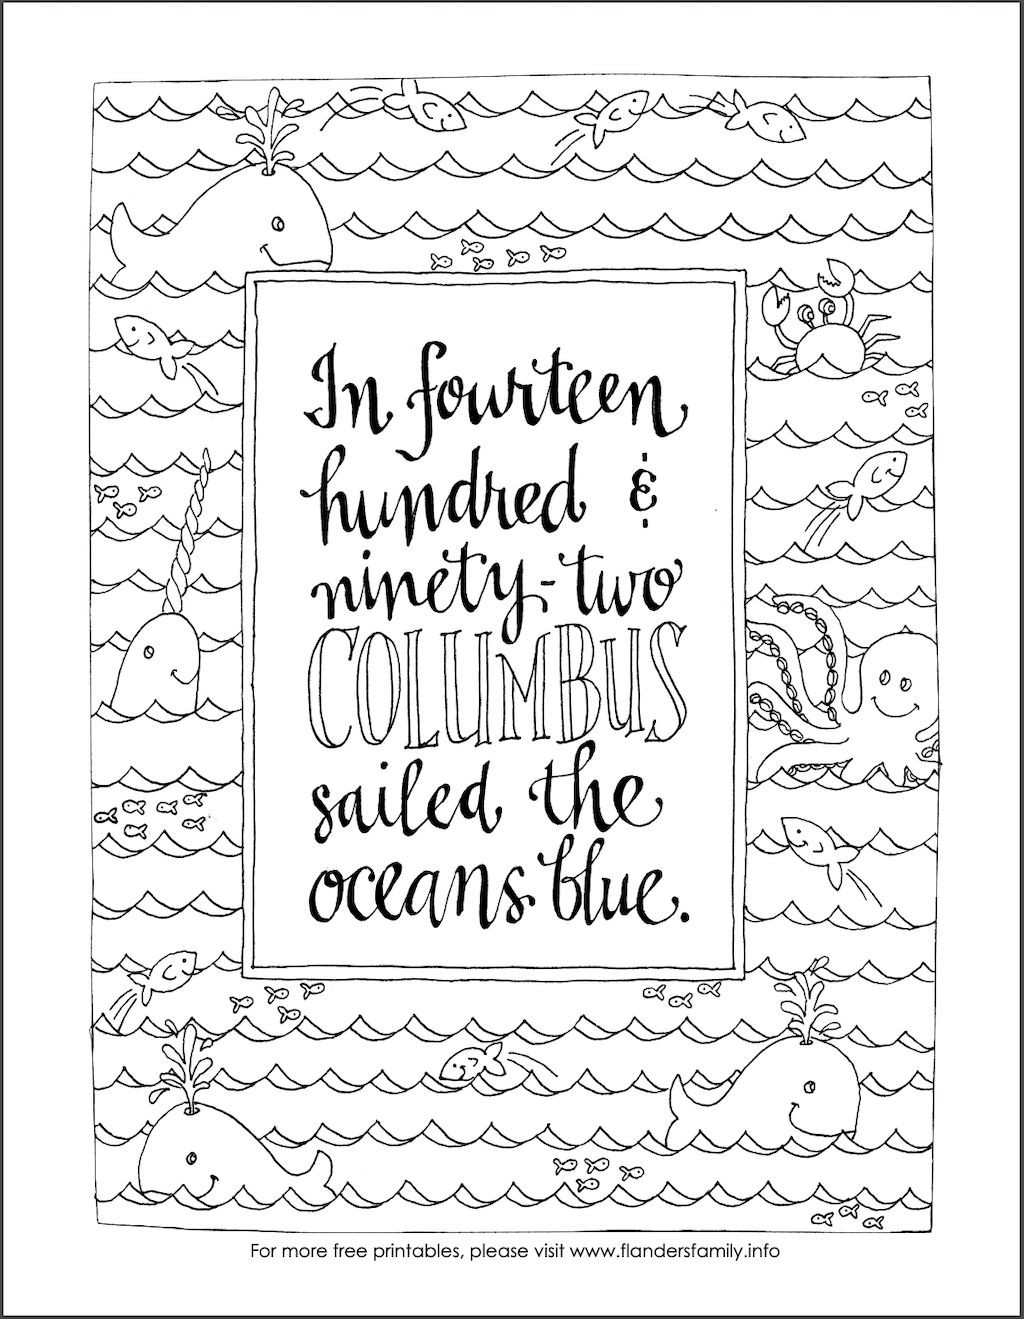 In fourteen
hundred &
ninety-two
COLUMBUS
sailed the
oceans blue.
For more free printables, please visit www.flandersfamily.info